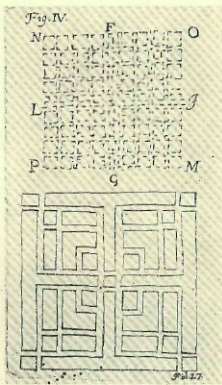 Fig. IV.
F
N O
L J
P M
G
Fol. 27.